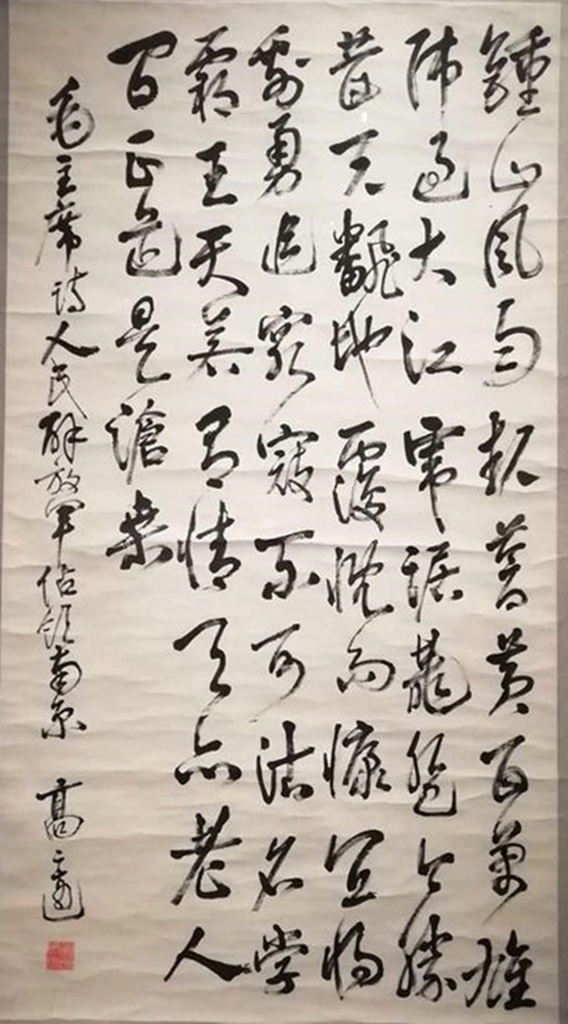 鍾山風雨起蒼黄百萬雄
師過大江虎踞龍盤今勝
昔天翻地覆慨而慷宜將
剩勇追窮寇不可沽名学
霸王天若有情天亦老人
間正道是滄桑
毛主席诗人民解放軍佔領南京 高